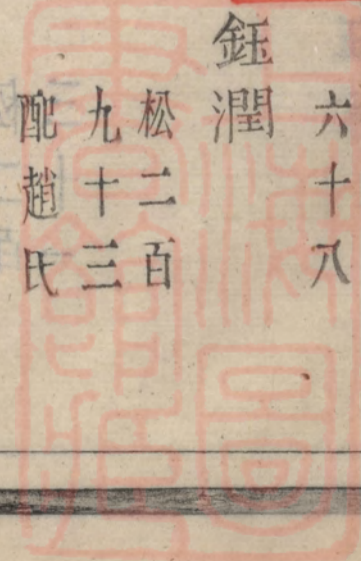 六十八
鈺潤
松二百
九十三
配趙氏